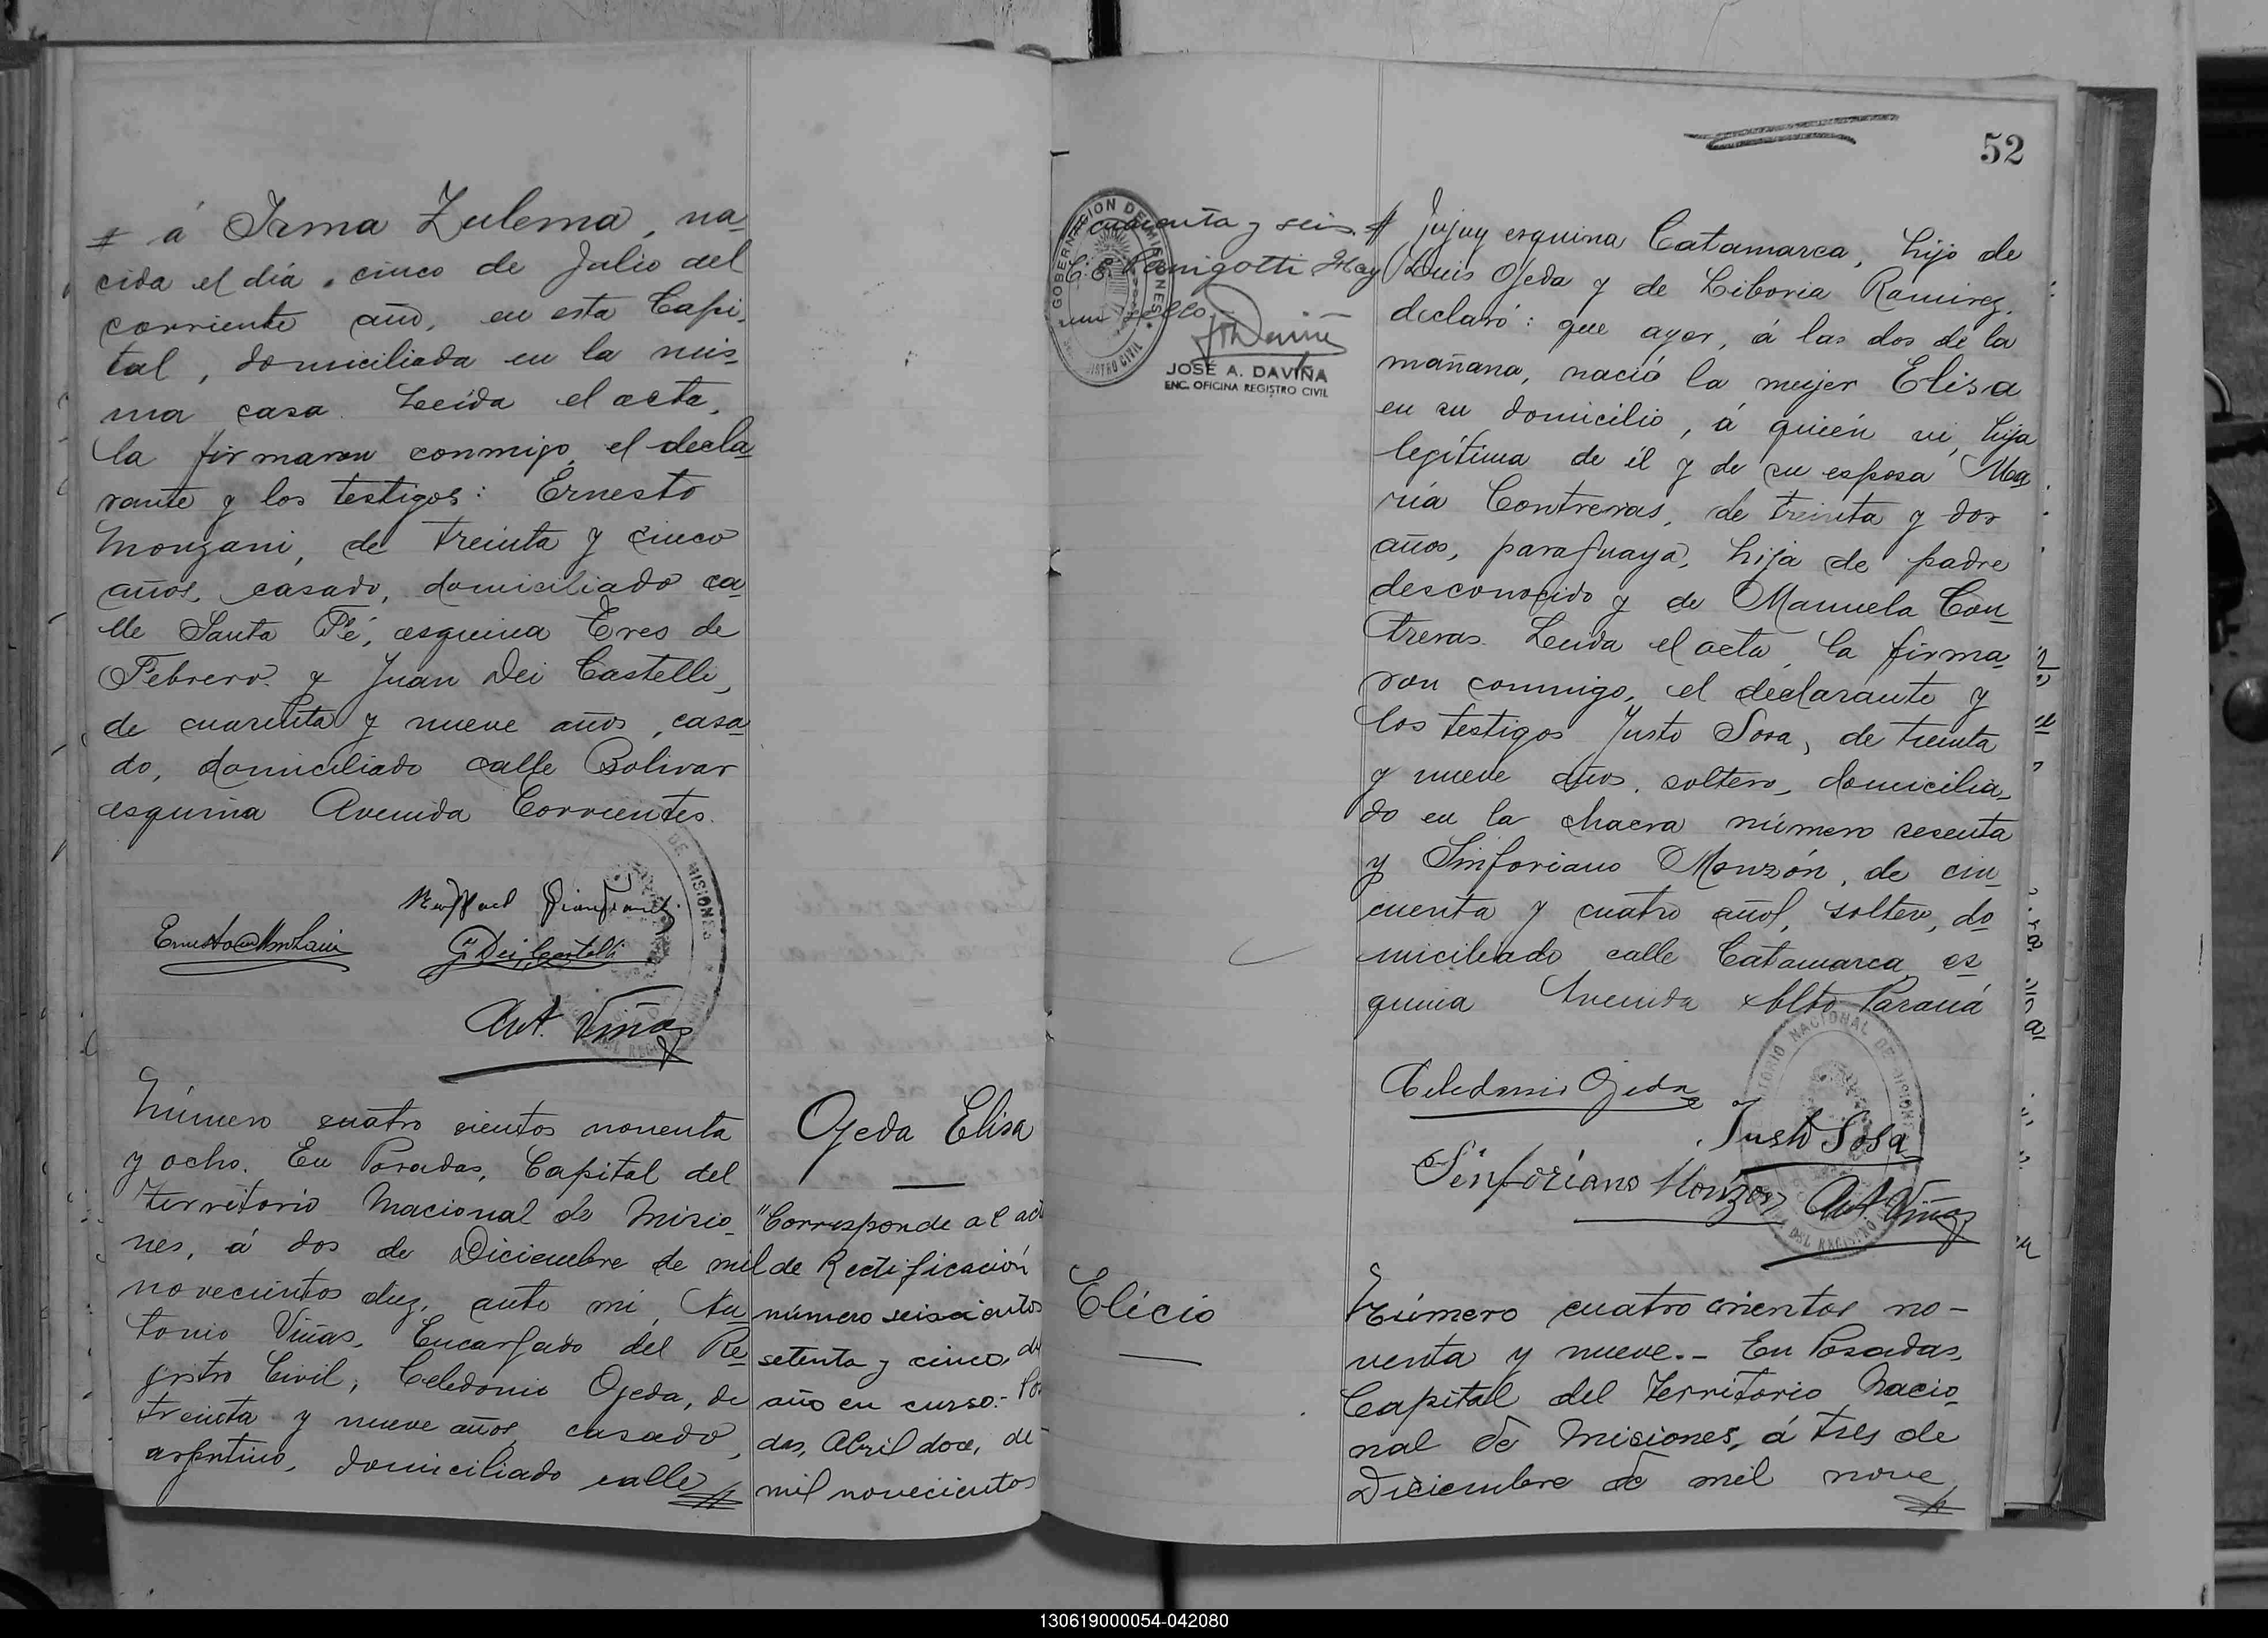 # á Irma Zulema, na-
cida el día, cinco de Julio del
corriente año, en esta Capi-
tal, domiciliada en la mis-
ma casa. Leída el acta,
la firmaron conmigo, el decla-
rante y los testigos: Ernesto
Monzani, de treinta y cinco
años, casado, domiciliado ca-
lle Santa Fé, esquina Tres de
Febrero y Juan Dei Castelli,
de cuarenta y nueve años, casa-
do, domiciliado calle Bolivar
esquina Avenida Corrientes.
DE MISIONES
G Dei Castelli
Ant. Viñas
Número cuatro cientos noventa
y ocho. En Posadas, Capital del
territorio Nacional de Misio-
nes, á dos de Diciembre de mil
novecientos diez, ante mí, An-
tonio Viñas, Encargado del Re-
gistro Civil, Celedonio Ojeda, de
treinta y nueve años, casado,
argentino, domiciliado calle #
Ojeda Elisa
"Corresponde al
de Rectificación
número seiscientos
setenta y cinco, 
año en curso.-
das, Abril doce, de
mil novecientos
52
cuarenta y seis.
C. E. Panigotti Hay
un sello
GOBERNACION DE MISIONES
REGISTRO CIVIL
JOSÉ A. DAVIÑA
ENC. OFICINA REGISTRO CIVIL
# Jujuy esquina Catamarca, hijo de
Luis Ojeda y de Liboria Ramirez,
declaró: que ayer, á las dos de la
mañana, nació la mujer Elisa
en su domicilio, á quién vi, hija
legítima de él y de su esposa Ma-
ría Contreras, de treinta y dos
años, paraguaya, hija de padre
desconocido y de Manuela Con-
treras. Leida el acta, la firma-
ron conmigo, el declarante y
los testigos Justo Sosa, de treinta
y nueve años, soltero, domicilia-
do en la chacra número sesenta
y Sinforiano Monzón, de cin-
cuenta y cuatro años, soltero, do-
miciliado calle Catamarca, es-
quina Avenida Alto Paraná
Celedonio Ojeda
Justo Sosa
Sinforiano Monzon
Ant. Viñas
TERRITORIO NACIONAL DE MISIONES
DEL REGISTRO
Elicio
Número cuatro cientos no-
venta y nueve.- En Posadas,
Capital del Territorio Nacio-
nal de Misiones, á tres de
Diciembre de mil nove #
130619000054-042080